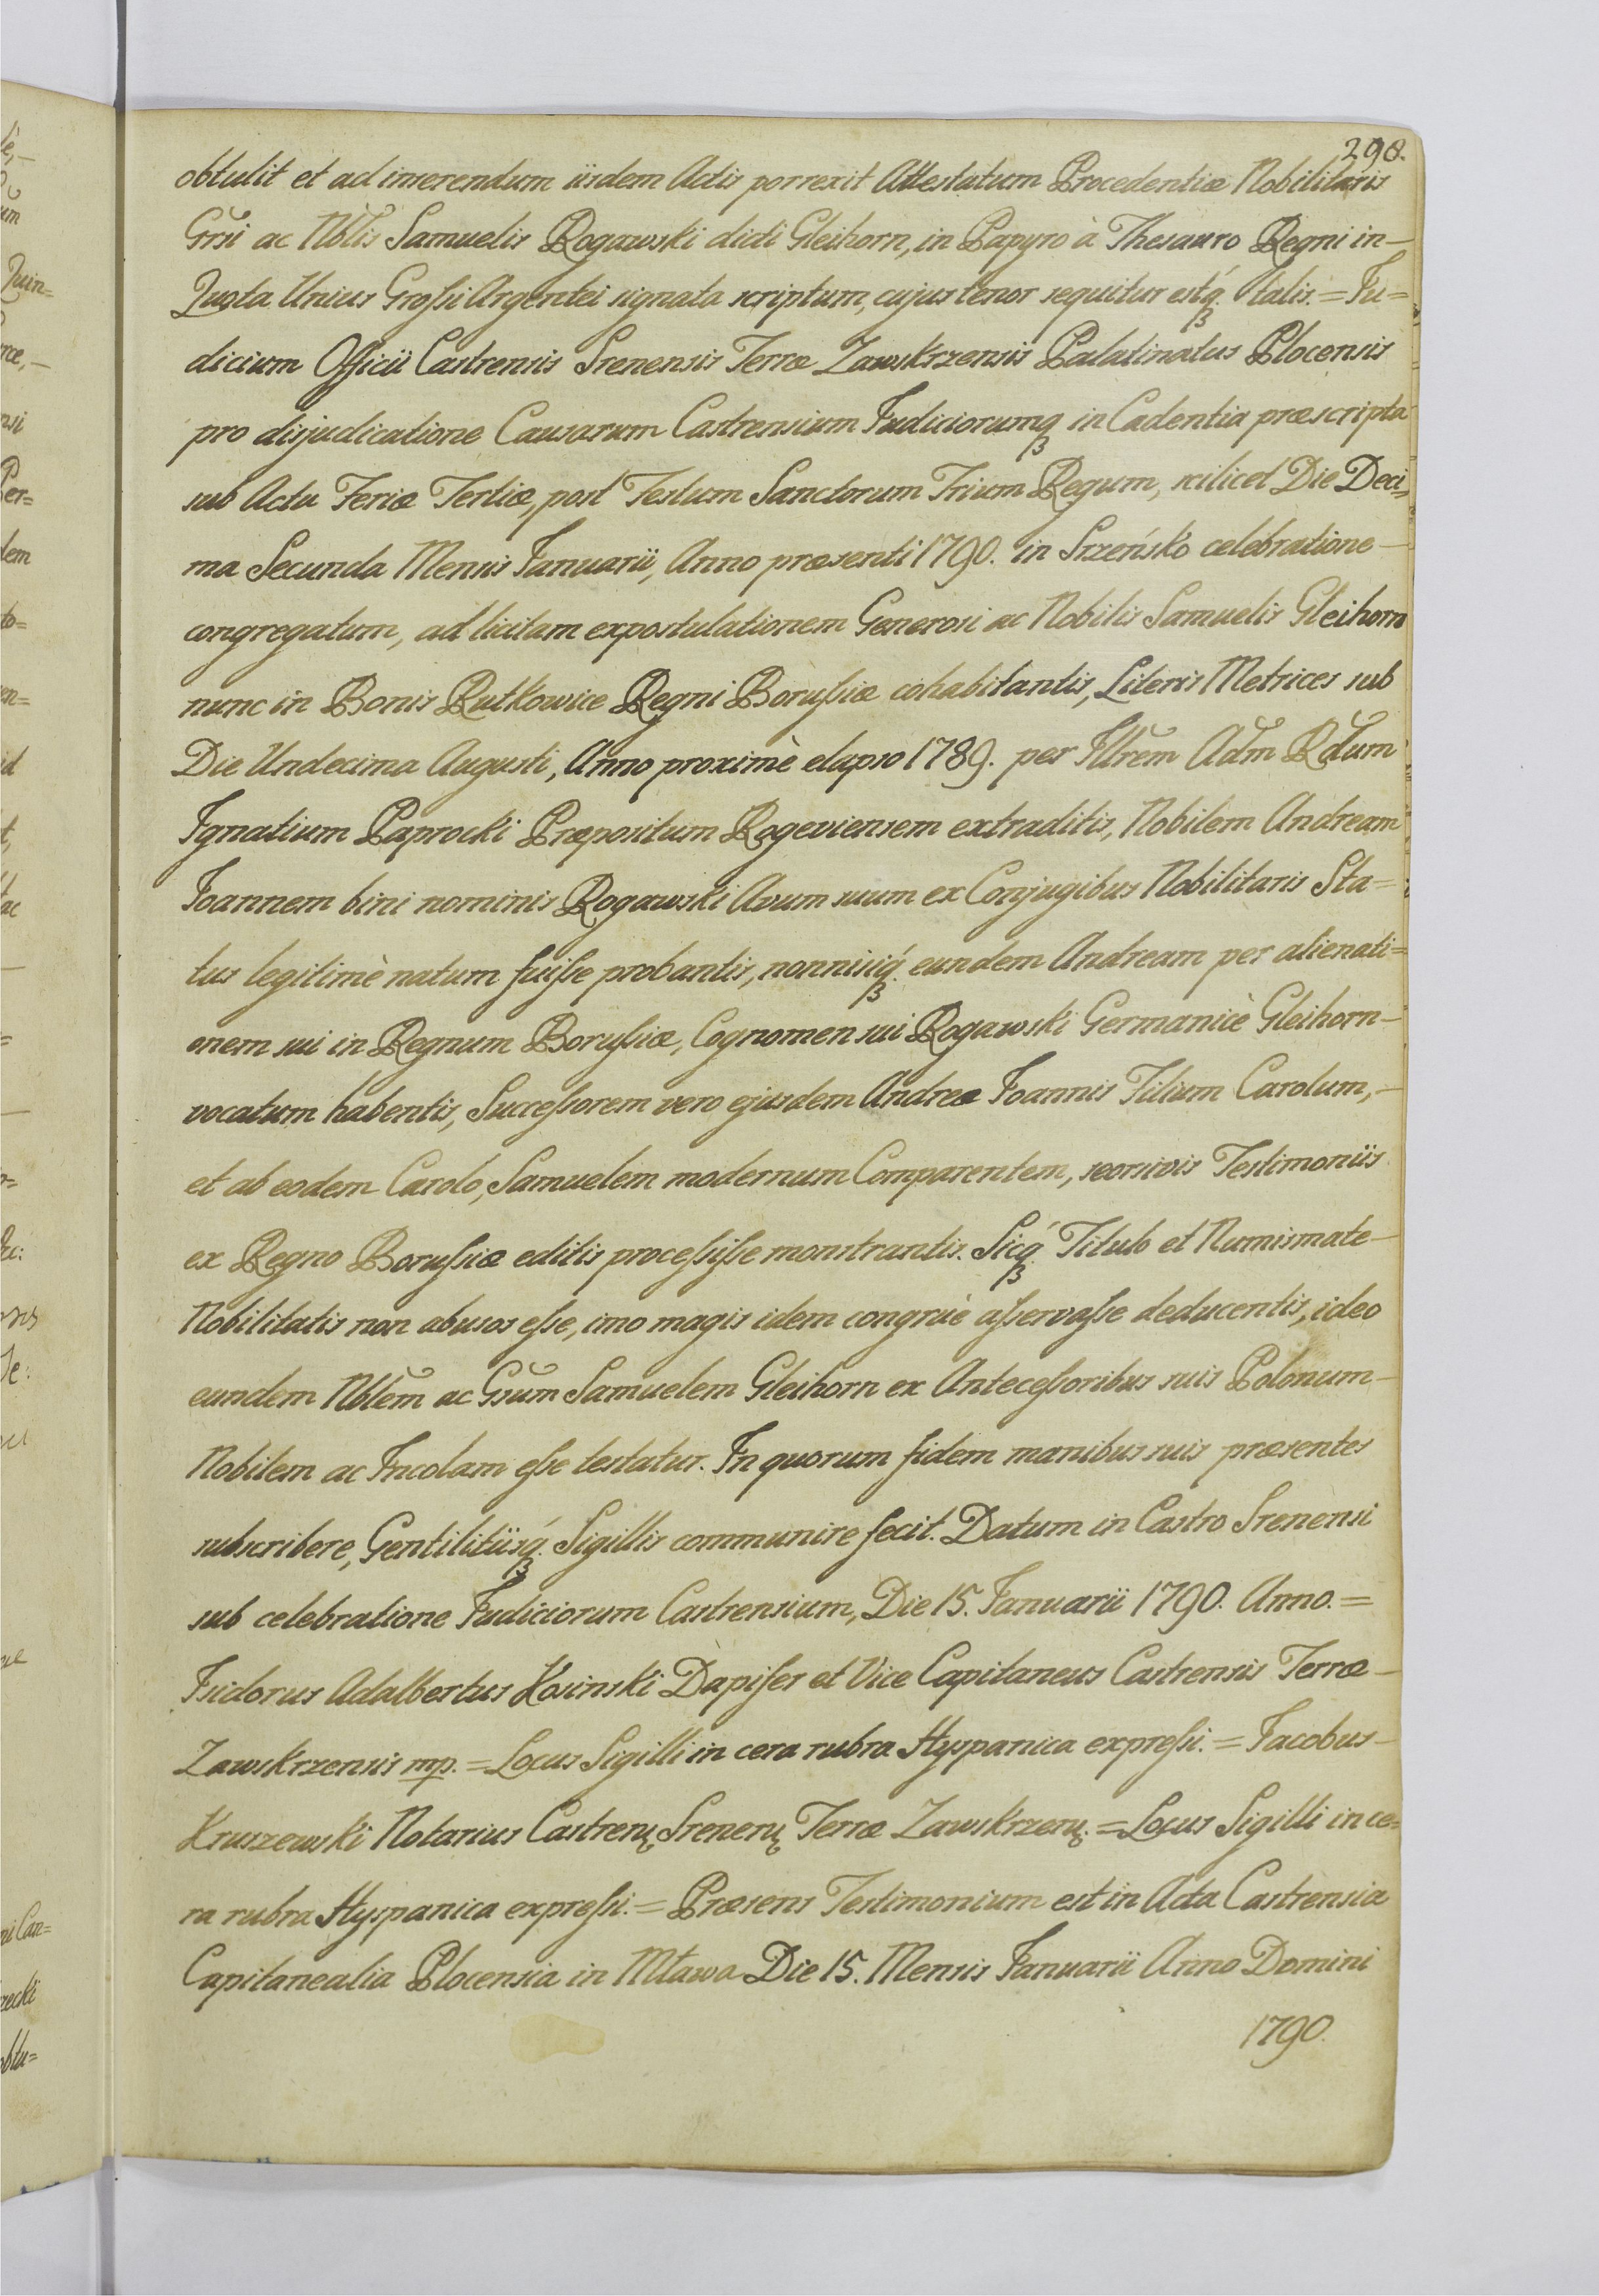 298.
obtulit et ad inserendum iisdem Actis porrexit Attestatum Procedentiæ Nobilitaris
Grsi ac Nblis Samuelis Rogawski dicti Gleihorn, in Papyro à Thesauro Regni in—
Quota Unius Grossi Argentei signata scriptum, cujus tenor sequitur estq́ꝫ talis. = Ju=
dicium Officii Castrensis Srenensis Terræ Zawskrzensis Palatinatus Plocensis
pro disjudicatione Causarum Castrensium Judiciorumqꝫ in Cadentia præscripta
sub Actu Feriæ Tertiæ, post Festum Sanctorum Trium Regum, scilicet Die Deci=
ma Secunda Mensis Januarii, Anno præsenti 1790. in Srzeńsko celebratione—
congregatum, ad licitam expostulationem Generosi ac Nobilis Samuelis Gleihorn
nunc in Bonis Rutkowice Regni Borussiæ cohabitantis, Literis Metrices sub
Die Undecima Augusti, Anno proximè elapso 1789. per Illrem Adm Rdum
Ignatium Paprocki Præpositum Rogeviensem extraditis, Nobilem Andream
Joannem bini nominis Rogawski Avum suum ex Conjugibus Nobilitaris Sta=
tus legitimè natum fuisse probantis, nonnisiq́ꝫ eundem Andream per alienati=
onem sui in Regnum Borussiæ, Cognomen sui Rogawski Germanicè Gleihorn—
vocatum habentis, Successorem vero ejusdem Andreæ Joannis Filium Carolum,—
et ab eodem Carolo, Samuelem modernum Comparentem, seorsivis Testimoniis
ex Regno Borussiæ editis processisse monstrantis. Sicq́ꝫ Titulo et Numismate—
Nobilitatis non abusos esse, imo magis idem congruè asservasse deducentis, ideo
eundem Nblem ac Gsum Samuelem Gleihorn ex Antecessoribus suis Polonum—
Nobilem ac Incolam esse testatur. In quorum fidem manibus suis præsentes
subscribere, Gentilitiisq́ꝫ Sigillis communire fecit. Datum in Castro Srenensi
sub celebratione Judiciorum Castrensium, Die 15. Januarii 1790. Anno. =
Isidorus Adalbertus Kosinski Dapifer et Vice Capitaneus Castrensis Terræ—
Zawskrzensis mp. = Locus Sigilli in cera rubra Hyspanica expressi. = Jacobus—
Kruszewski Notarius Castrenṣ Srenenṣ Terræ Zawskrzenṣ. = Locus Sigilli in ce=
ra rubra Hyspanica expressi. = Præsens Testimonium est in Acta Castrensia
Capitanealia Plocensia in Mława Die 15. Mensis Januarii Anno Domini
1790.